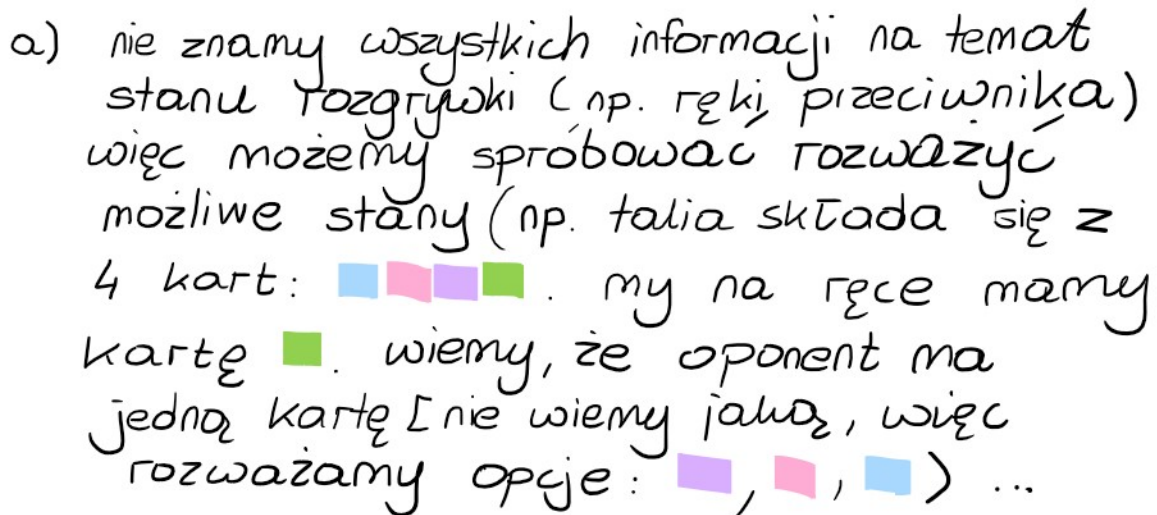 a) nie znamy wszystkich informacji na temat
stanu rozgrywki (np. ręki przeciwnika)
więc możemy spróbować rozważyć
możliwe stany (np. talia składa się z
4 kart: . my na ręce mamy
kartę . wiemy, że oponent ma
jedną kartę [nie wiemy jaką, więc
rozważamy opcje: , , ) ...